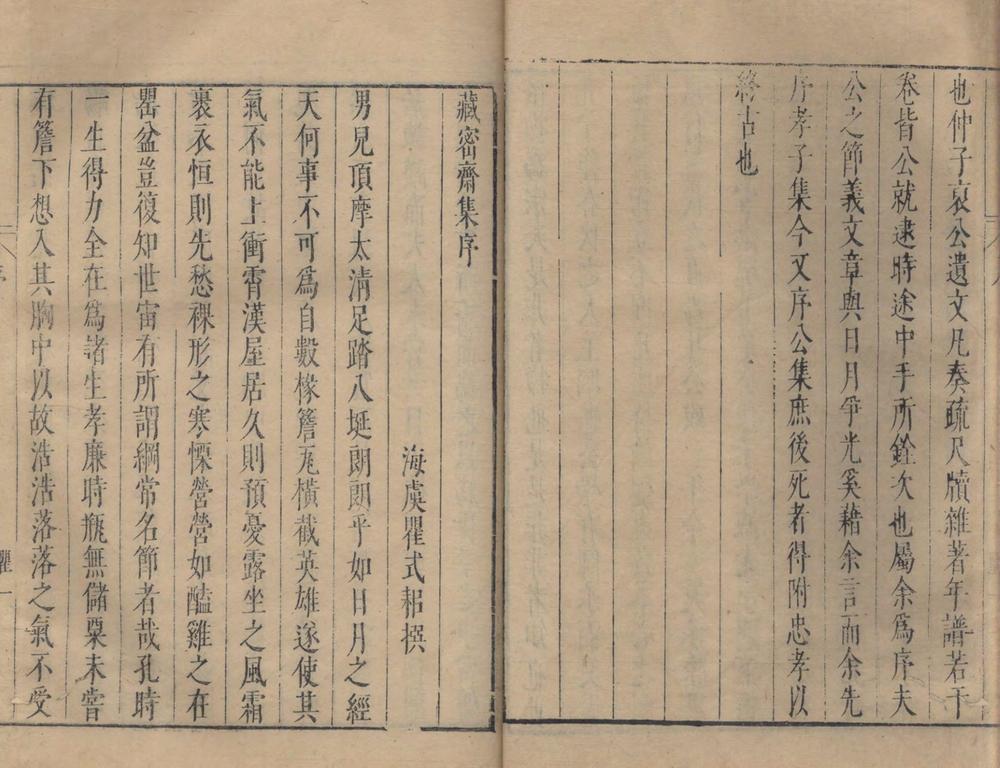 也仲子哀公遺文凡奏疏尺牘雜著年譜若干
卷皆公就逮時途中手所銓次也屬余爲序夫
公之節義文章與日月爭光奚藉余言而余先
序孝子集今又序公集庶後死者得附忠孝以
終古也
藏密齋集序
海虞瞿式耜撰
男兒頂摩太清足踏八埏朗朗乎如日月之經
天何事不可爲自數椽簷瓦橫截英雄遂使其
氣不能上衝霄漢屋居久則預憂露坐之風霜
裹衣恒則先愁裸形之寒慄營營如醯雞之在
罌盆豈復知世宙有所謂綱常名節者哉孔時
一生得力全在爲諸生孝廉時瓶無儲粟未嘗
有簷下想入其胸中以故浩浩落落之氣不受